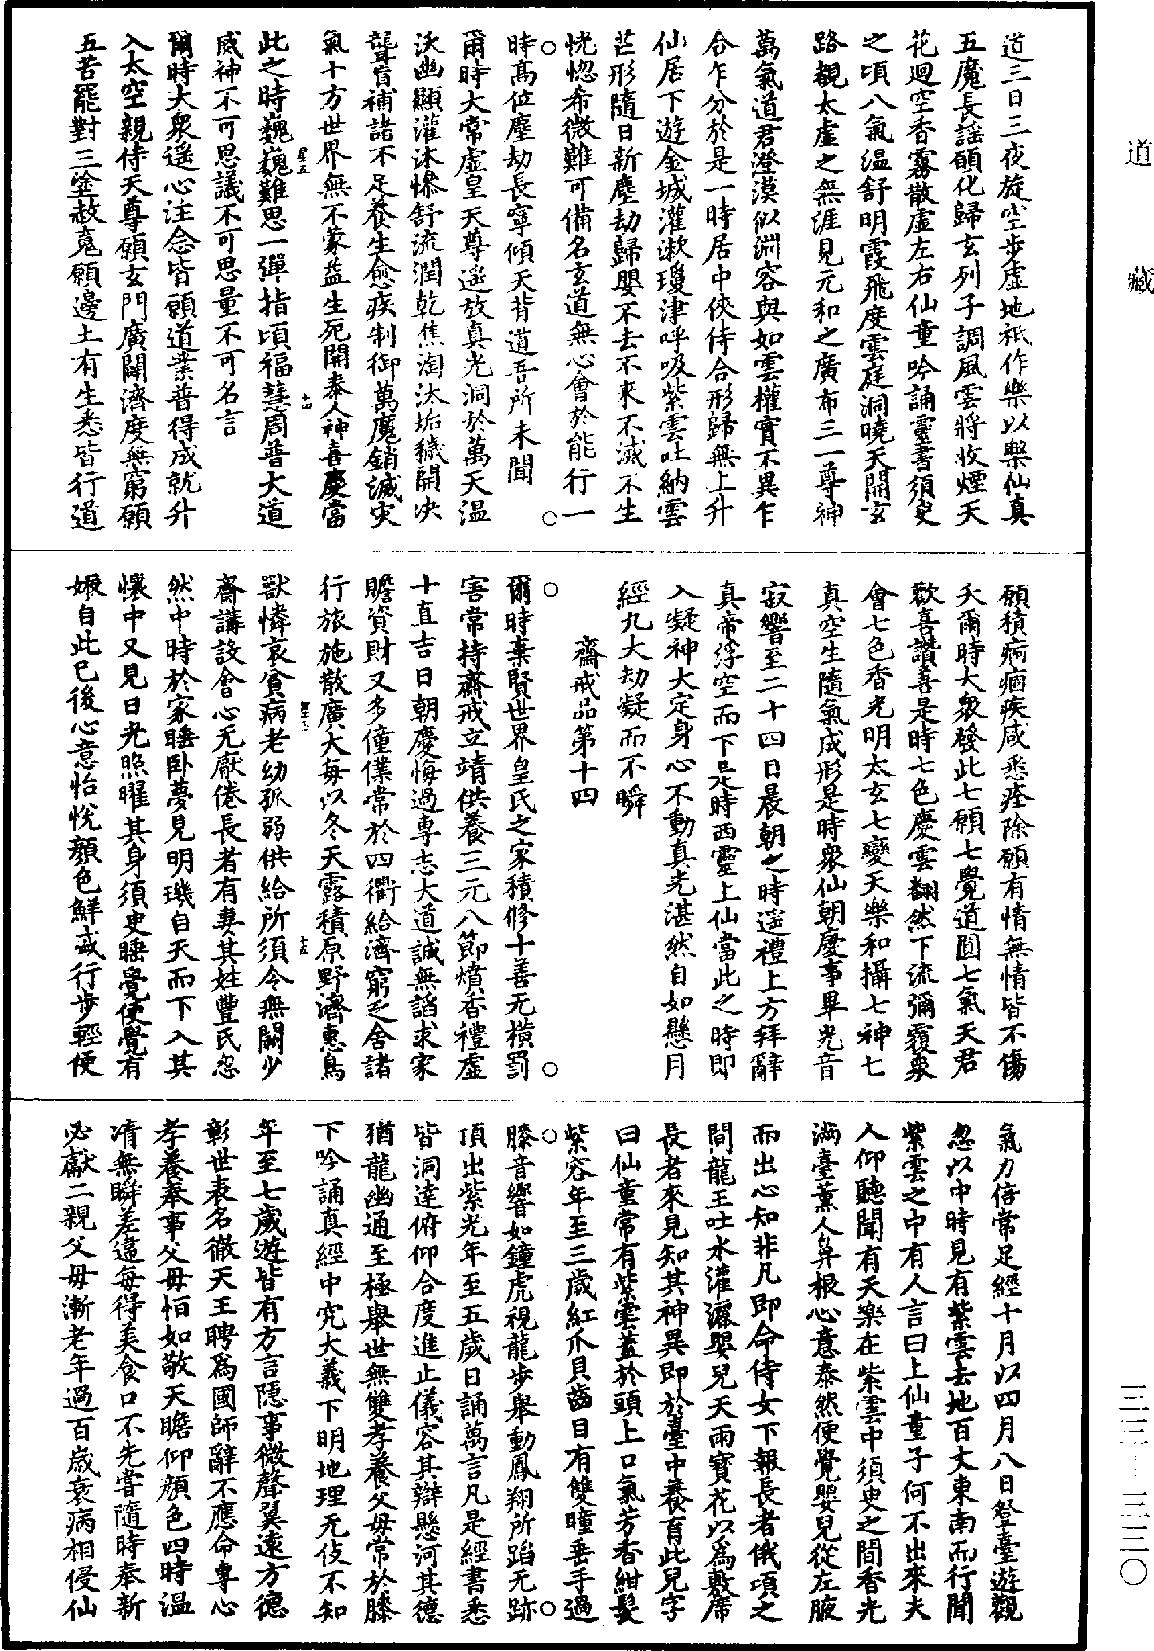 道三日三夜旋空步虛地祇作樂以樂仙真
五魔長謠願化歸玄列子調風雲將收煙天
花迴空香霧散虛左右仙童吟誦靈書須臾
之頃八氣溫舒明霞飛度雲庭洞曉天開玄
路觀太虛之無涯見元和之廣布三一尊神
萬氣道君澄漠似淵容與如雲權實不異乍
合乍分於是一時居中俠侍合形歸無上升
仙居下遊金城灌漱瓊津呼吸紫雲吐納雲
芒形隨日新塵劫歸嬰不去不來不滅不生
恍惚希微難可備名玄道無心會於能行一
時高位塵劫長寧傾天背道吾所未聞
爾時大常虛皇天尊遙放真光洞於萬天溫
沃幽顯灌沐慘舒流潤乾焦淘汰垢穢開決
聾盲補諸不足養生愈疾制御萬魔銷滅灾
氣十方世界無不蒙益生死開泰人神喜慶當
此之時巍巍難思一彈指頃福慧周普大道
威神不可思議不可思量不可名言
爾時大衆遥心注念皆願道業普得成就升
入太空親侍天尊願玄門廣闢濟度無窮願
五苦罷對三塗赦𡨚願邊土有生悉皆行道
願積痾痼疾咸悉痊除願有情無情皆不傷
夭爾時大衆發此七願七覺道圓七氣天君
歡喜讚善是時七色慶雲翻然下流彌覆衆
會七色香光明太玄七變天樂和攝七神七
真空生隨氣成形是時衆仙朝慶事畢光音
寂響至二十四日晨朝之時遥禮上方拜辭
真帝浮空而下是時西靈上仙當此之時即
入凝神大定身心不動真光湛然自如懸月
經九大劫凝而不瞬
齋戒品第十四
爾時棄賢世界皇氏之家積修十善无橫罰
害常持齋戒立靖供養三元八節焚香禮虛
十直吉日朝慶悔過專志大道誠無諂求家
贍資財又多僮僕常於四衢給濟窮乏舍諸
行旅施散廣大每以冬天露積原野濟惠鳥
獸憐哀貧病老幼孤弱供給所須令無闕少
齋講設會心无厭倦長者有妻其姓豐氏忽
然中時於家睡卧夢見明璣自天而下入其
懷中又見日光照曜其身須臾睡覺便覺有
娠自此已後心意怡悅顏色鮮盛行步輕便
氣力倍常足經十月以四月八日登臺遊觀
忽以中時見有紫雲去地百丈東南而行聞
紫雲之中有人言曰上仙童子何不出來夫
人仰聽聞有天樂在紫雲中須臾之間香光
滿臺薰人鼻根心意泰然便覺嬰兒從左腋
而出心知非凡即命侍女下報長者俄頃之
間龍王吐水灌灑嬰兒天雨寶花以爲敷席
長者來見知其神異即於臺中養育此兒字
曰仙童常有紫雲蓋於頭上口氣芳香紺髮
紫容年至三歲紅爪貝齒目有雙瞳垂手過
膝音響如鐘虎視龍步舉動鳳翔所蹈无跡
頂出紫光年至五歲日誦萬言凡是經書悉
皆洞達俯仰合度進止儀容其辯懸河其德
猶龍幽通至極舉世無雙孝養父母常於膝
下吟誦真經中究大義下明地理无伎不知
年至七歲遊皆有方言隱事微聲翼遠方德
彰世表名徹天王聘爲國師辭不應命專心
孝養奉事父母怕如敬天瞻仰顏色四時温
凊無瞬差違每得美食口不先嘗隨時奉新
必獻二親父母漸老年過百歲衰病相侵仙
道藏
三三—三三〇